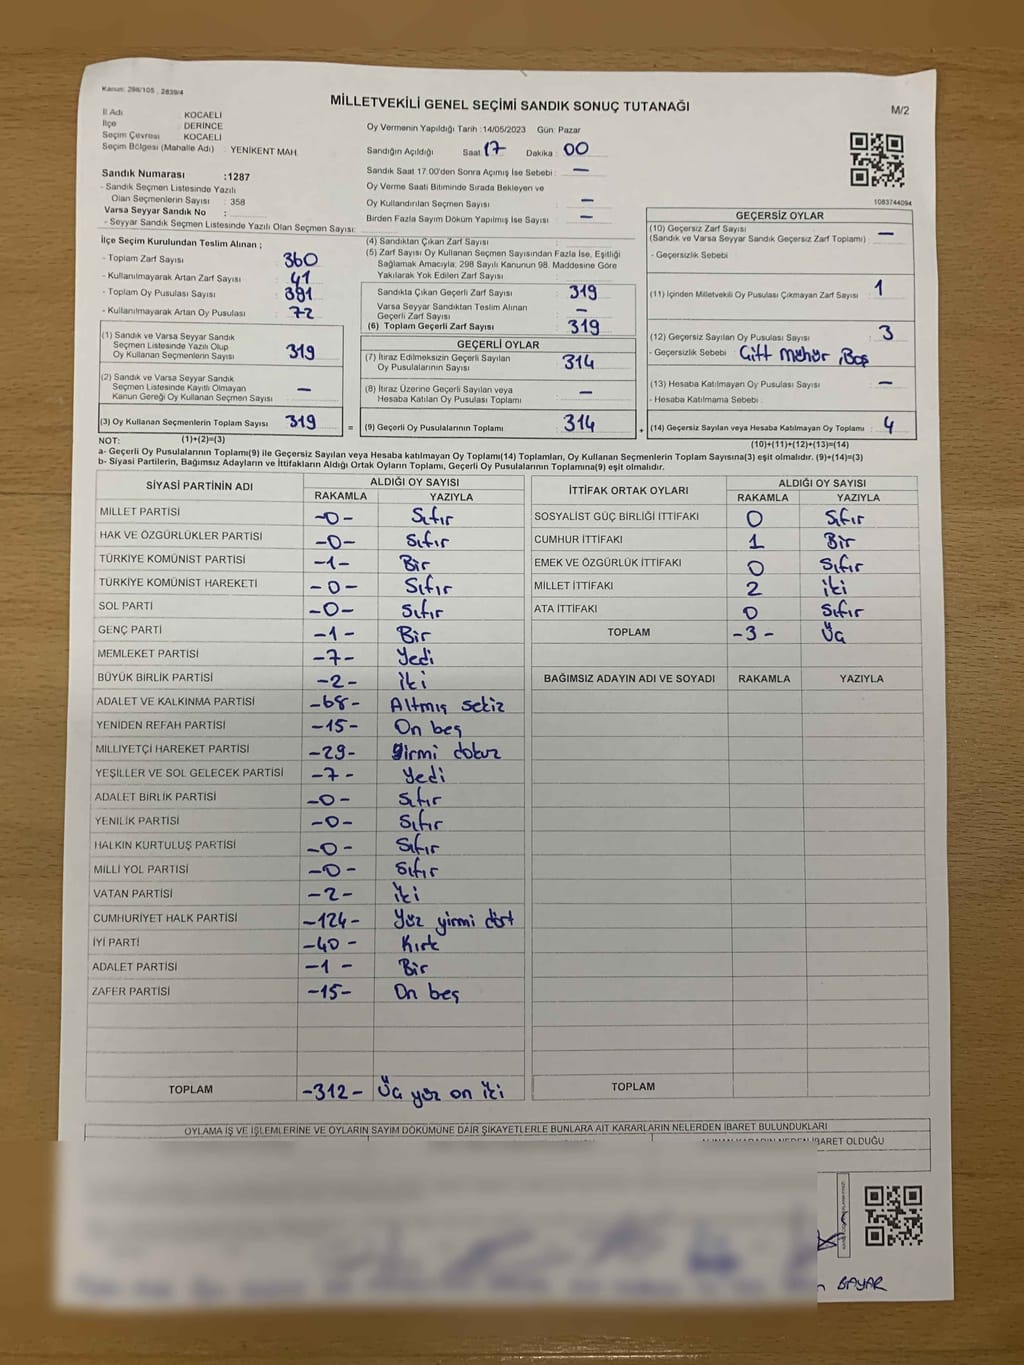 Kanun: 298/105 , 2839/4
MİLLETVEKİLİ GENEL SEÇİMİ SANDIK SONUÇ TUTANAĞI
M/2
İl Adı : KOCAELİ
İlçe : DERİNCE
Seçim Çevresi : KOCAELİ
Seçim Bölgesi (Mahalle Adı) : YENİKENT MAH.
Oy Vermenin Yapıldığı Tarih :14/05/2023 Gün: Pazar
Sandığın Açıldığı Saat : 17 Dakika : 00
Sandık Saat 17.00'den Sonra Açımış İse Sebebi : —
Oy Verme Saati Bitiminde Sırada Bekleyen ve
Oy Kullandırılan Seçmen Sayısı : —
Birden Fazla Sayım Döküm Yapılmış İse Sayısı : —
1083744094
Sandık Numarası :1287
- Sandık Seçmen Listesinde Yazılı
Olan Seçmenlerin Sayısı : 358
Varsa Seyyar Sandık No :
- Seyyar Sandık Seçmen Listesinde Yazılı Olan Seçmen Sayısı:
İlçe Seçim Kurulundan Teslim Alınan ;
- Toplam Zarf Sayısı : 360
- Kullanılmayarak Artan Zarf Sayısı : 41
- Toplam Oy Pusulası Sayısı : 391
- Kullanılmayarak Artan Oy Pusulası : 72
(1) Sandık ve Varsa Seyyar Sandık
Seçmen Listesinde Yazılı Olup
Oy Kullanan Seçmenlerin Sayısı : 319
(2) Sandık ve Varsa Seyyar Sandık
Seçmen Listesinde Kayıtlı Olmayan
Kanun Gereği Oy Kullanan Seçmen Sayısı : —
(3) Oy Kullanan Seçmenlerin Toplam Sayısı : 319
(4) Sandıktan Çıkan Zarf Sayısı :
(5) Zarf Sayısı Oy Kullanan Seçmen Sayısından Fazla İse, Eşitliği
Sağlamak Amacıyla, 298 Sayılı Kanunun 98. Maddesine Göre
Yakılarak Yok Edilen Zarf Sayısı :
Sandıkta Çıkan Geçerli Zarf Sayısı : 319
Varsa Seyyar Sandıktan Teslim Alınan
Geçerli Zarf Sayısı : —
(6) Toplam Geçerli Zarf Sayısı : 319
GEÇERLİ OYLAR
(7) İtiraz Edilmeksizin Geçerli Sayılan
Oy Pusulalarının Sayısı : 314
(8) İtiraz Üzerine Geçerli Sayılan veya
Hesaba Katılan Oy Pusulası Toplamı : —
= (9) Geçerli Oy Pusulalarının Toplamı : 314 +
GEÇERSİZ OYLAR
(10) Geçersiz Zarf Sayısı
(Sandık ve Varsa Seyyar Sandık Geçersiz Zarf Toplamı) : —
- Geçersizlik Sebebi :
(11) İçinden Milletvekili Oy Pusulası Çıkmayan Zarf Sayısı : 1
(12) Geçersiz Sayılan Oy Pusulası Sayısı : 3
- Geçersizlik Sebebi : Çift Mühür, Boş
(13) Hesaba Katılmayan Oy Pusulası Sayısı : —
- Hesaba Katılmama Sebebi :
(14) Geçersiz Sayılan veya Hesaba Katılmayan Oy Toplamı : 4
NOT: (1)+(2)=(3)
(10)+(11)+(12)+(13)=(14)
a- Geçerli Oy Pusulalarının Toplamı(9) ile Geçersiz Sayılan veya Hesaba katılmayan Oy Toplamı(14) Toplamları, Oy Kullanan Seçmenlerin Toplam Sayısına(3) eşit olmalıdır. (9)+(14)=(3)
b- Siyasi Partilerin, Bağımsız Adayların ve İttifakların Aldığı Ortak Oyların Toplamı, Geçerli Oy Pusulalarının Toplamına(9) eşit olmalıdır.
SİYASİ PARTİNİN ADI ALDIĞI OY SAYISI
RAKAMLA YAZIYLA
MİLLET PARTİSİ -0- Sıfır
HAK VE ÖZGÜRLÜKLER PARTİSİ -0- Sıfır
TÜRKİYE KOMÜNİST PARTİSİ -1- Bir
TÜRKİYE KOMÜNİST HAREKETİ -0- Sıfır
SOL PARTİ -0- Sıfır
GENÇ PARTİ -1- Bir
MEMLEKET PARTİSİ -7- Yedi
BÜYÜK BİRLİK PARTİSİ -2- İki
ADALET VE KALKINMA PARTİSİ -68- Altmış sekiz
YENİDEN REFAH PARTİSİ -15- On beş
MİLLİYETÇİ HAREKET PARTİSİ -29- Yirmi dokuz
YEŞİLLER VE SOL GELECEK PARTİSİ -7- Yedi
ADALET BİRLİK PARTİSİ -0- Sıfır
YENİLİK PARTİSİ -0- Sıfır
HALKIN KURTULUŞ PARTİSİ -0- Sıfır
MİLLİ YOL PARTİSİ -0- Sıfır
VATAN PARTİSİ -2- İki
CUMHURİYET HALK PARTİSİ -124- Yüz yirmi dört
İYİ PARTİ -40- Kırk
ADALET PARTİSİ -1- Bir
ZAFER PARTİSİ -15- On beş
TOPLAM -312- Üç yüz on iki
İTTİFAK ORTAK OYLARI ALDIĞI OY SAYISI
RAKAMLA YAZIYLA
SOSYALİST GÜÇ BİRLİĞİ İTTİFAKI 0 Sıfır
CUMHUR İTTİFAKI 1 Bir
EMEK VE ÖZGÜRLÜK İTTİFAKI 0 Sıfır
MİLLET İTTİFAKI 2 İki
ATA İTTİFAKI 0 Sıfır
TOPLAM -3- Üç
BAĞIMSIZ ADAYIN ADI VE SOYADI RAKAMLA YAZIYLA
TOPLAM
OYLAMA İŞ VE İŞLEMLERİNE VE OYLARIN SAYIM DÖKÜMÜNE DAİR ŞİKAYETLERLE BUNLARA AİT KARARLARIN NELERDEN İBARET BULUNDUKLARI
İBARET OLDUĞU
BAYAR